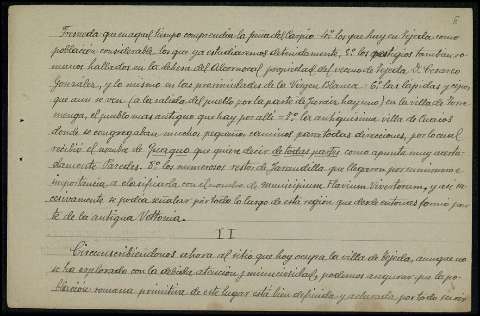 6
Trevada que en aquel tiempo comprendía la zona del Campo. 4º los que hay en Tejeda como
población considerable, los que ya estudiaremos detenidamente. 5º los vestigios tambien ro-
manos hallados en la dehesa del Alcornocal, propiedad del vecino de Tejeda D. Cesareo
Gonzalez, y lo mismo en las proximidades de la Virgen Blanca. 6º las lápidas y
que aun se ven (a la salida del pueblo por la parte de hay uno) en la villa de
el pueblo mas antiguo que hay por alli = 7º la antiquisima villa de Cuacos
donde se congregaban muchos pequeños caminos para todas direcciones, por lo cual
recibió el nombre de que quiere decir de todas partes como apunta muy acerta-
damente Paredes. 8º los numerosos restos de Jarandilla que llegaron por su numero e
importancia a clasificarla con el nombre de municipium Flavium Vivertorum, y asi su-
cesivamente se podria señalar por todo lo largo de esta región que desde entonces formó par-
te de la antigua Vettonia.
II
Circunscribiendonos ahora al sitio que hoy ocupa la villa de Tejeda, aunque no
se ha explorado con la debida atencion y minuciosidad, podemos asegurar que la po-
blación romana primitiva de este lugar está bien definida y aclarada por todo su